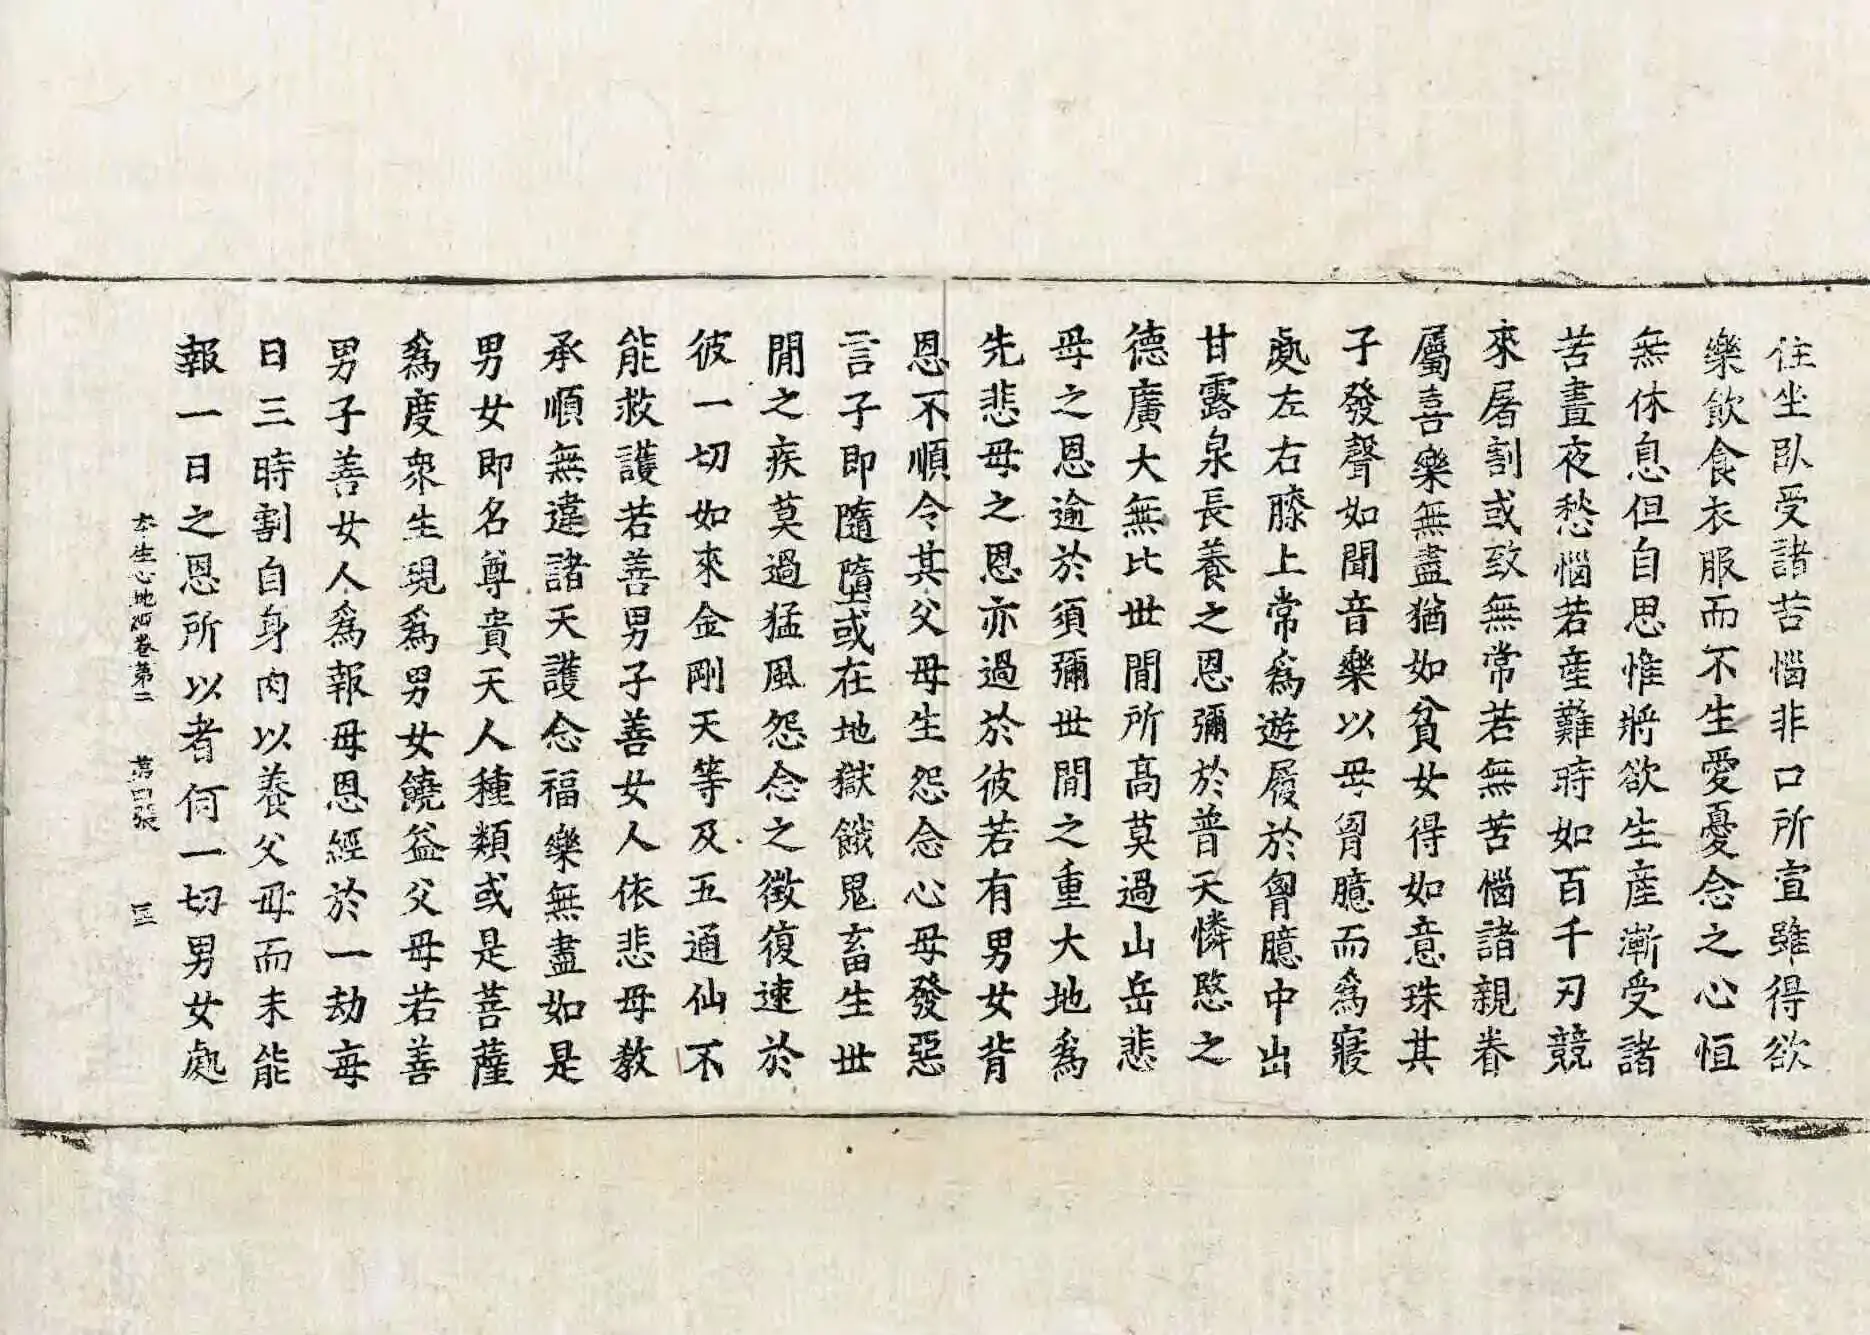 住坐臥受諸苦惱非口所宣雖得欲
樂飲食衣服而不生愛憂念之心恒
無休息但自思惟將欲生產漸受諸
苦晝夜愁惱若產難時如百千刃競
來屠割或致無常若無苦惱諸親眷
屬喜樂無盡猶如貧女得如意珠其
子發聲如聞音樂以母胷臆而為寢
處左右膝上常為遊履於胷臆中出
甘露泉長養之恩彌於普天憐愍之
德廣大無比世間所高莫過山岳悲
母之恩逾於須彌世間之重大地為
先悲母之恩亦過於彼若有男女背
恩不順令其父母生怨念心母發惡
言子即隨墮或在地獄餓鬼畜生世
間之疾莫過猛風怨念之徵復速於
彼一切如來金剛天等及五通仙不
能救護若善男子善女人依悲母教
承順無違諸天護念福樂無盡如是
男女即名尊貴天人種類或是菩薩
為度眾生現為男女饒益父母若善
男子善女人為報母恩經於一劫每
日三時割自身肉以養父母而未能
報一日之恩所以者何一切男女處
本生心地經卷第二 第四張